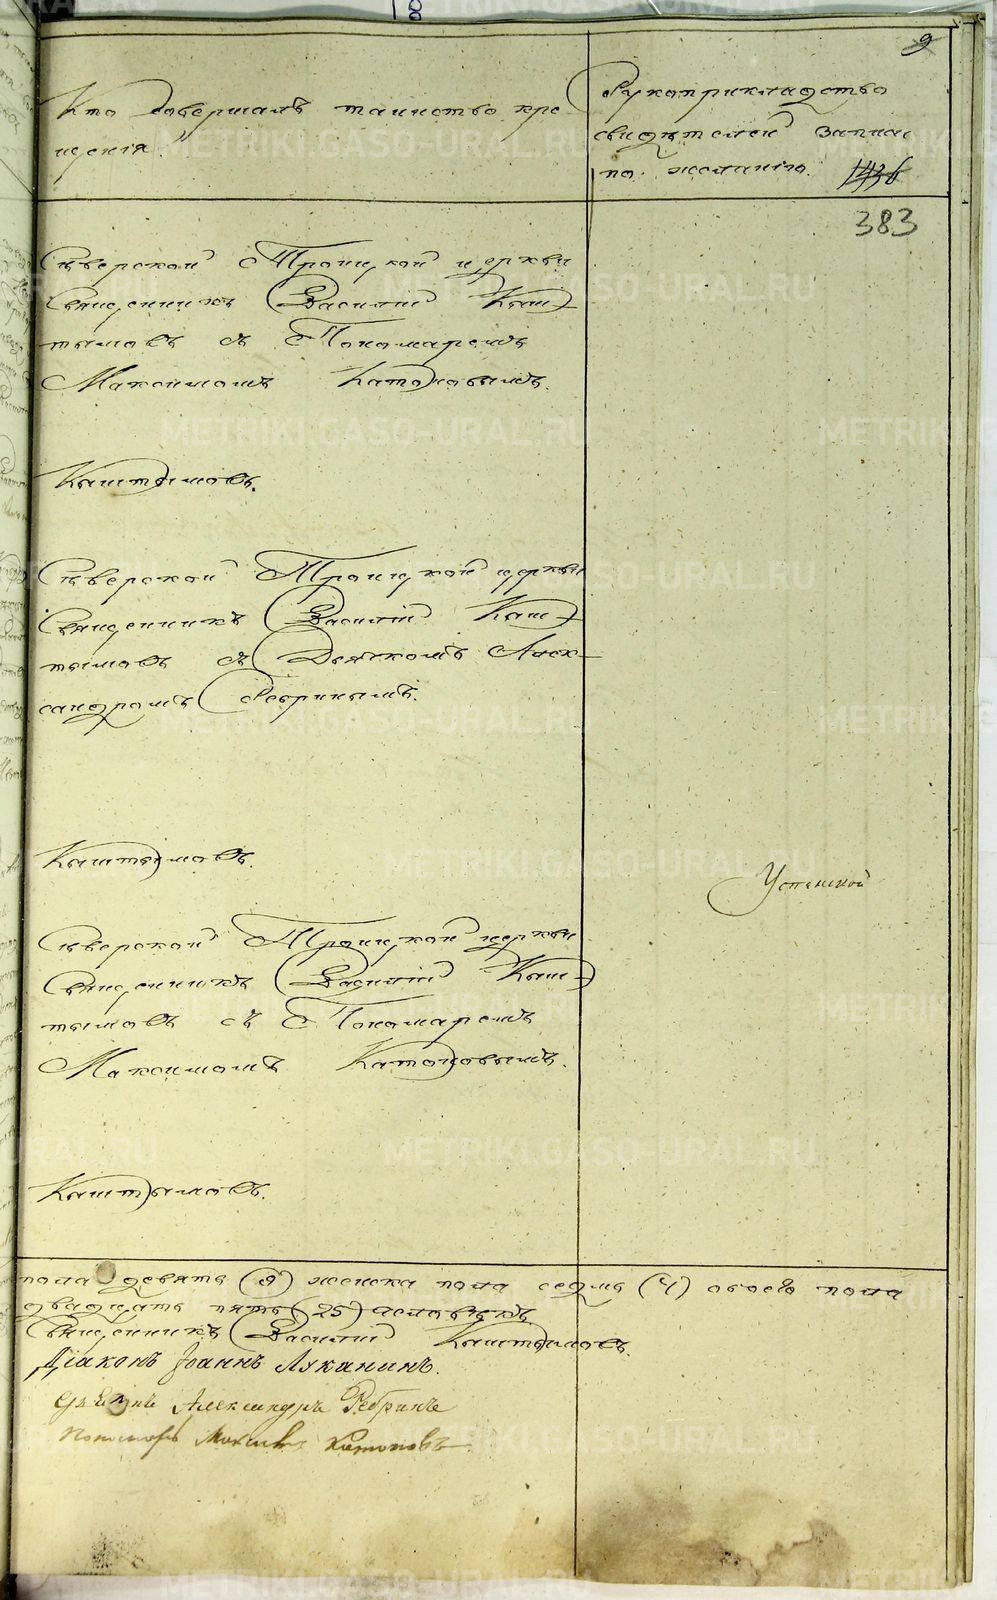 9
Кто совершалъ таинство кре
щенія.
Рукоприкладство
свидѣтелей записи
по желанію.
383
Сѣверской Троицкой церкви
Священникъ Василій Кыш-
тымовъ съ Пономаремъ
Максимомъ Катоновымъ.
Кыштымовъ.
Сѣверской Троицкой церкви
Священникъ Василій Кыш-
тымовъ съ Дьячкомъ Алек-
сандромъ Ребринымъ.
Кыштымовъ.
Успенской
Сѣверской Троицкой церкви
Священникъ Василій Кыш-
тымовъ съ Пономаремъ
Максимомъ Катоновымъ.
Кыштымовъ.
пола девять (9) женска пола седмь (7) обоего пола
двадцать пять (25) человѣкъ
Священникъ Василій Кыштымовъ.
Діаконъ Іоаннъ Луканинъ.
Александръ Ребринъ
Пономарь Максимъ Катоновъ
METRIKI.GASO-URAL.RU